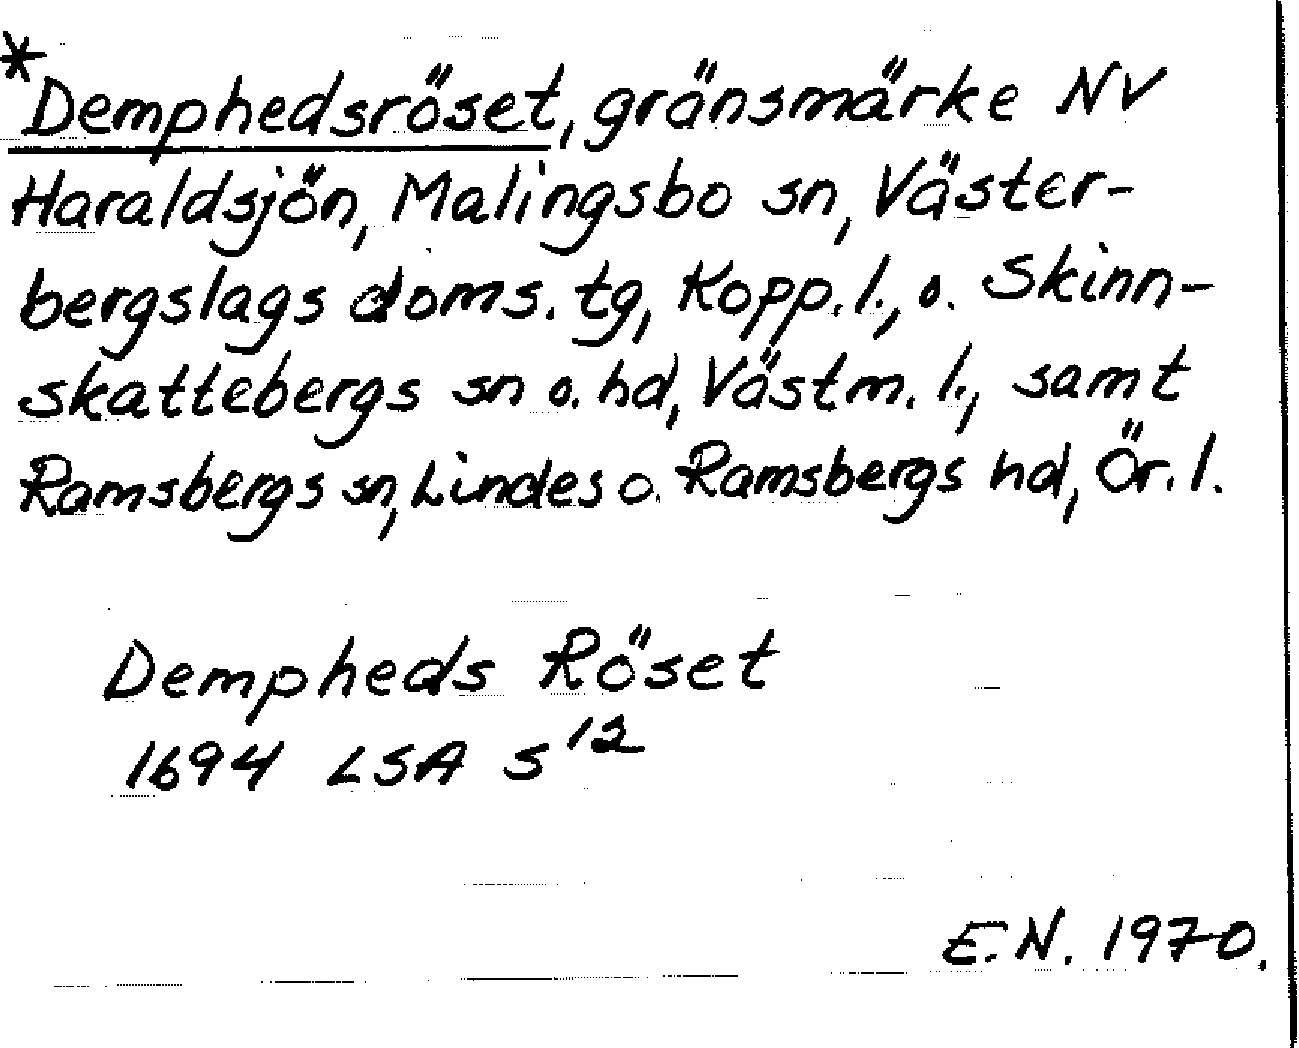 *Demphedsröset, gränsmärke NV
Haraldsjön, Malingsbo sn, Väster-
bergslags doms. tg, Kopp. l., o. Skinn-
skattebergs sn o. hd, Västm. l., samt
Ramsbergs sn, Lindes o. Ramsbergs hd, Ör. l.
Dempheds Röset
1694 LSA S 12
E.N. 1970.